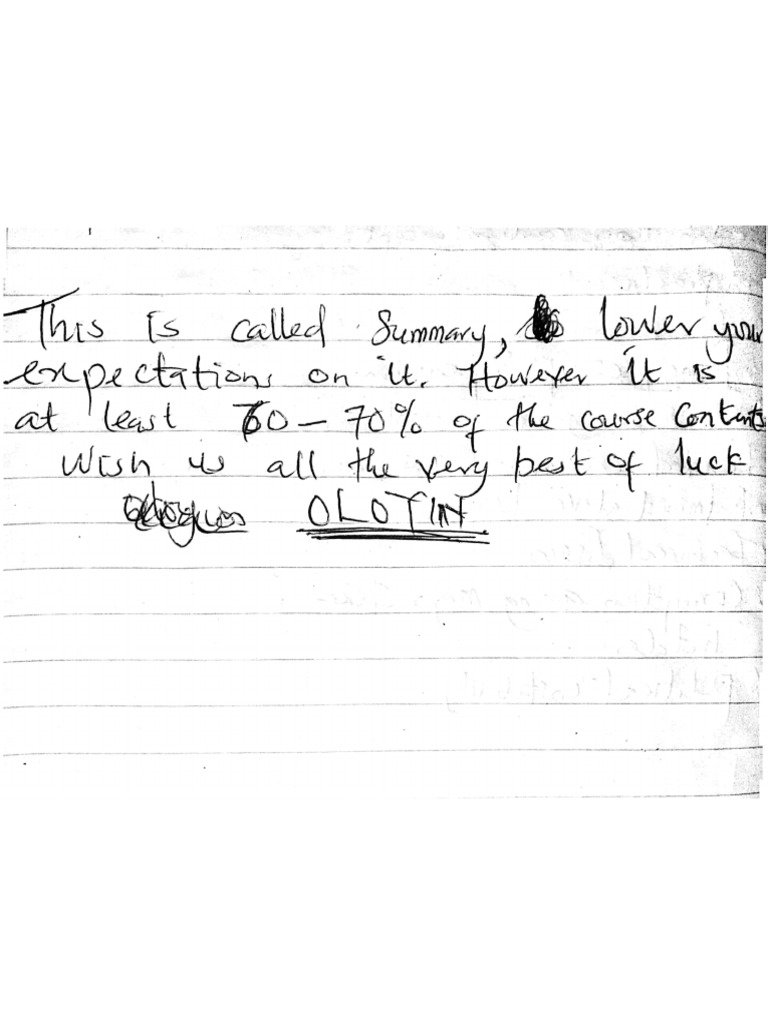 This is called Summary, lower your
expectations on it. However it is
at least 60 - 70% of the course contents
Wish us all the very best of luck
OLOTIN